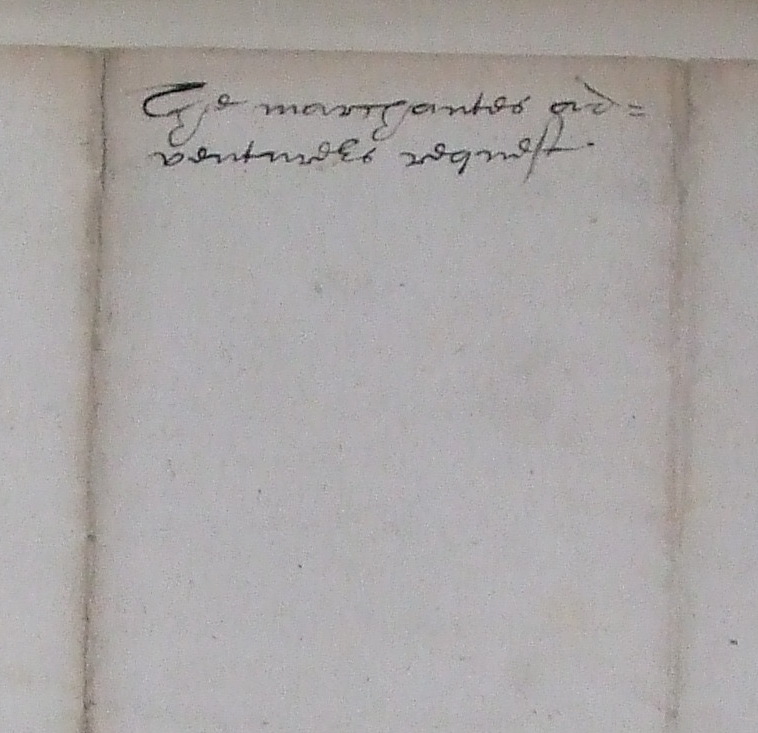 The marchantes ad=
venturers request.